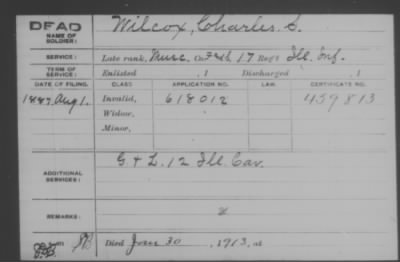 DEAD
NAME OF SOLDIER:
Wilcox, Charles S.
SERVICE:
Late rank, Musc. Co. F&S, 17 Reg't Ill. Inf.
TERM OF SERVICE:
Enlisted , 1 Discharged , 1
DATE OF FILING. CLASS. APPLICATION NO. LAW. CERTIFICATE NO.
1887, Aug 1. Invalid, 618012 459813
Widow,
Minor,
ADDITIONAL SERVICES:
G. & L. 12 Ill. Cav.
REMARKS:
Died June 30 , 1913, at